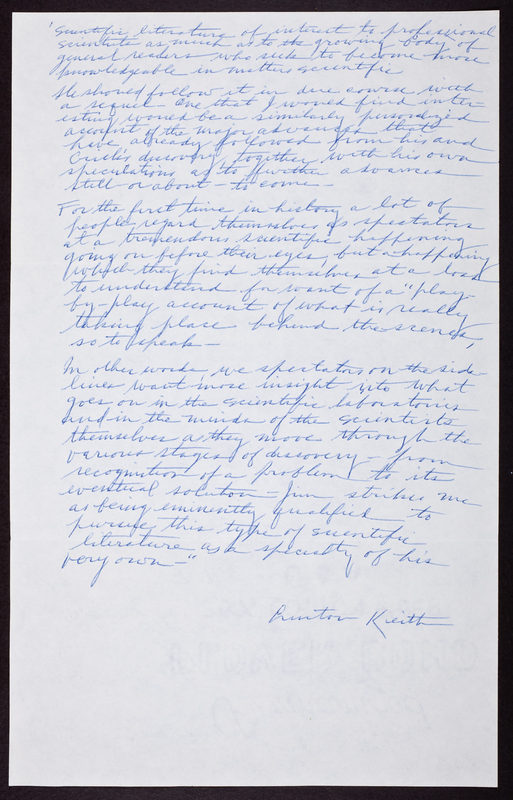 'Scientific literature of interest to professional
scientists as much as to the growing body of
general readers who seek to become more
knowledgeable in matters scientific
He should follow it in due course with
a sequel - One that I would find inter-
esting would be a similarly personalized
account of the major advances that
have already followed from his and
Crick's discovery together with his own
speculations as to further advances
still or about - to come -
For the first time in history a lot of
people regard themselves as spectators
at a tremendous scientific happening
going on before their eyes, but a happening
which they find themselves at a loss
to understand for want of a "play-
by-play account of what is really
taking place behind the scenes,
so to speak -
In other words we spectators on the side-
lines want more insight into what
goes on in the scientific laboratories
and in the minds of the scientists
themselves as they move through the
various stages of discovery - from
recognition of a problem to its
eventual solution - Jim strikes me
as being eminently qualified to
pursue this type of scientific
literature as a specialty of his
very own - "
Keith